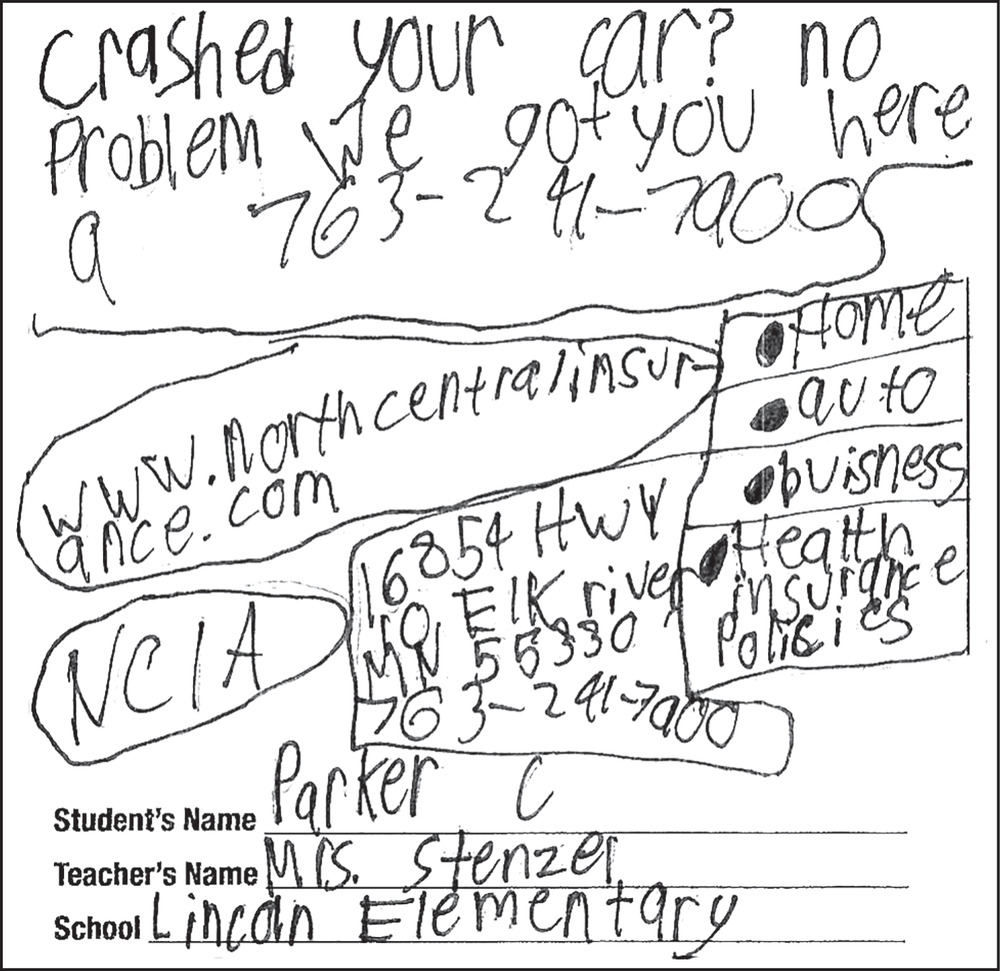 Crashed your car? no
Problem We got you here
a 763-241-7900
www.northcentralinsur-
ance.com
Home
auto
buisness
Health
insurance
Policies
16854 HWY
10, Elk river
MN 55330
763-241-7900
NCIA
Student's Name Parker C
Teacher's Name Mrs. Stenzel
School Lincoln Elementary